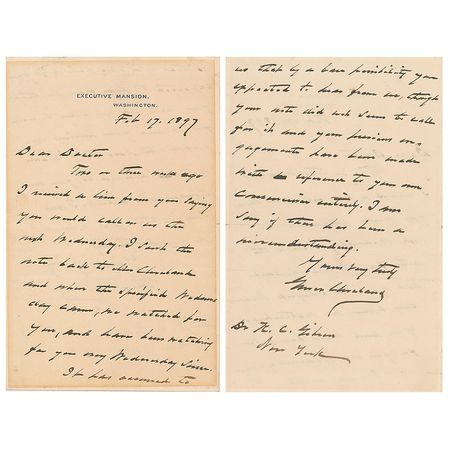 EXECUTIVE MANSION,
WASHINGTON.
Feb 17. 1897
Dear Doctor
Two or three weeks ago
I received a line from you saying
you would call on us the
next Wednesday. I sent the
note back to Mrs Cleveland
and when the specified Wednes
day came, we watched for
you, and have been watching
for you every Wednesday since.
It has occurred to
us that by a bare possibility you
expected to hear from us, though
your note did not seem to call
for it and your previous en-
gagements have been made
with reference to your own
convenience entirely. I am
sorry if there has been a
misunderstanding.
Yours very truly
Grover Cleveland
Dr. K. C. Gibson
New York